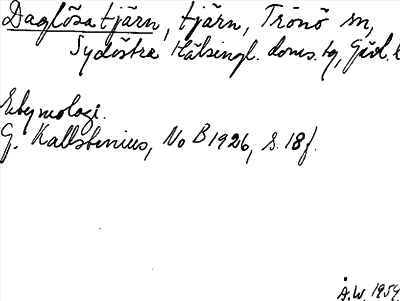 Daglösa tjärn, tjärn, Trönö sn,
Sydöstra Hälsingl. doms. tg, Gävl. l
Etymologi.
G. Kallstenius, No B 1926, s. 18f.
Å.W. 1954.